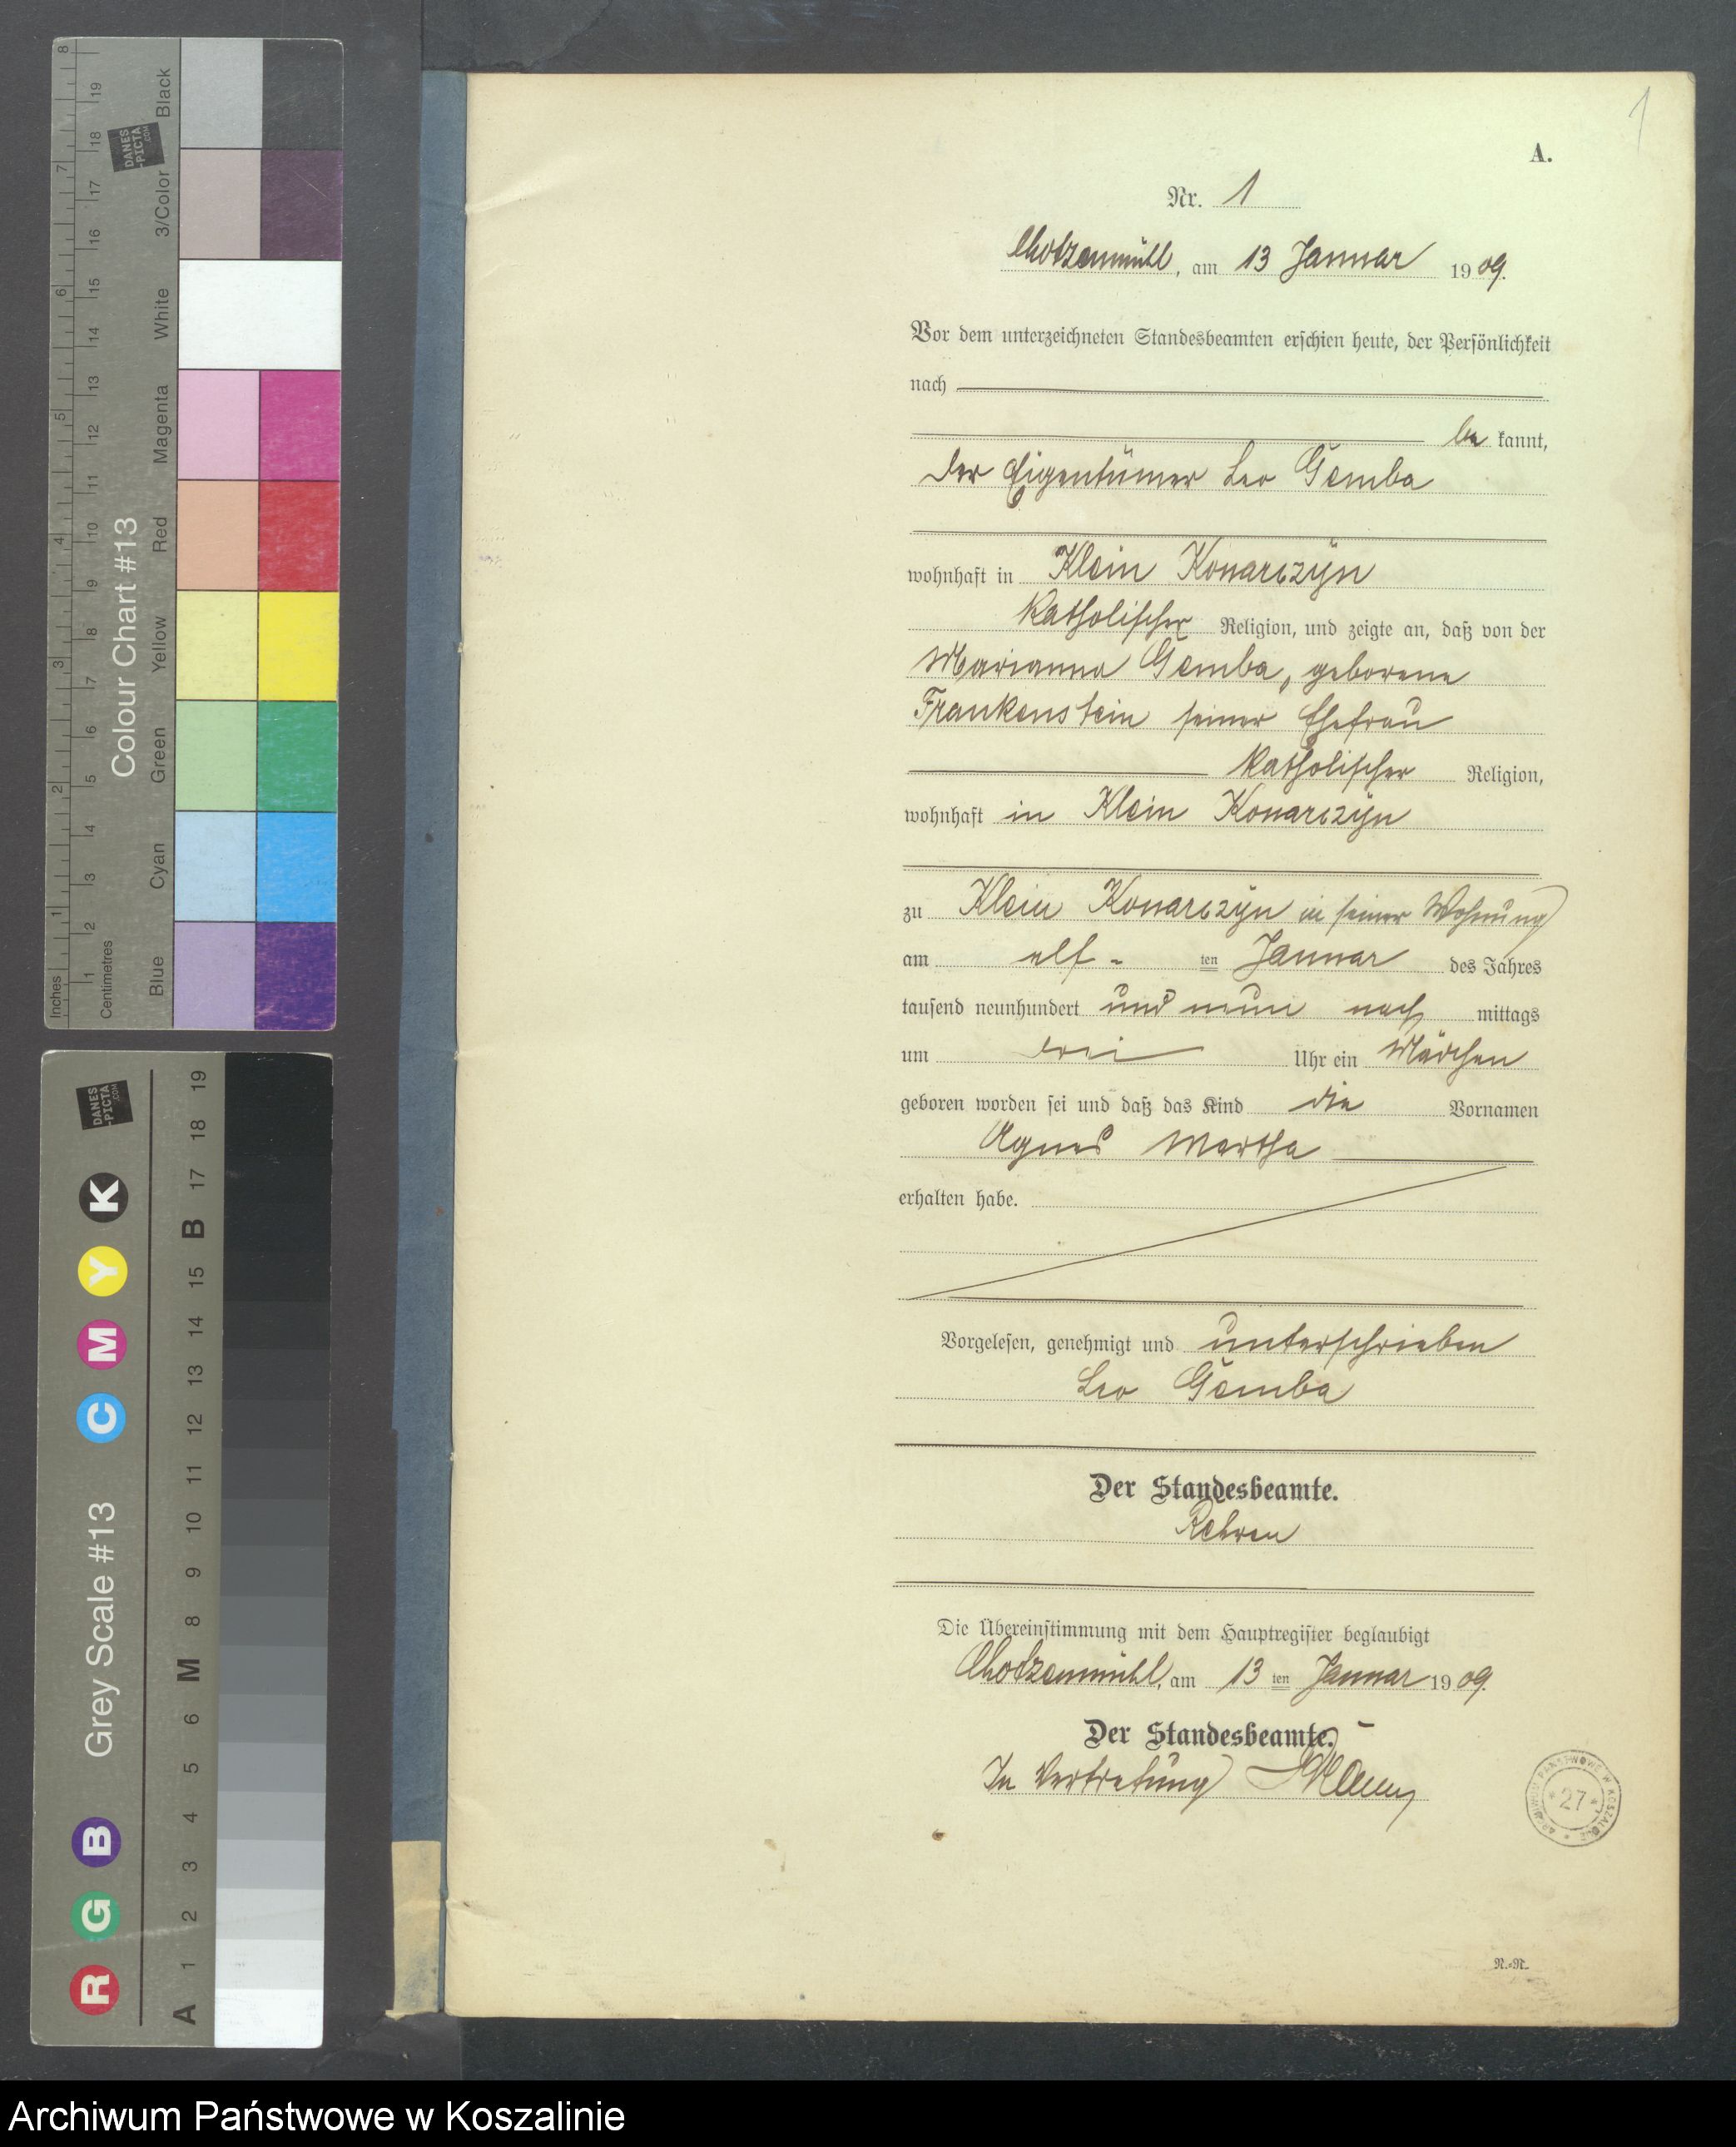 1
A.
Nr. 1
Chotzenmühl, am 13 Januar 1909.
Vor dem unterzeichneten Standesbeamten erschien heute, der Persönlichkeit
nach
be kannt,
der Eigentümer Leo Gemba
wohnhaft in Klein Konarczyn
katholischer Religion, und zeigte an, daß von der
Marianna Gemba, geborene
Frankenstein seiner Ehefrau
katholischer Religion,
wohnhaft in Klein Konarczyn
zu Klein Konarczyn in seiner Wohnung
am elf- ten Januar des Jahres
tausend neunhundert und neun nach mittags
um drei Uhr ein Mädchen
geboren worden sei und daß das Kind die Vornamen
Agnes Martha
erhalten habe.
Vorgelesen, genehmigt und unterschrieben
Leo Gemba
Der Standesbeamte.
Die Übereinstimmung mit dem Hauptregister beglaubigt
Chotzenmühl, am 13 ten Januar 1909.
Der Standesbeamte.
In Vertretung
ARCHIWUM PAŃSTWOWE W KOSZALINIE
* 27 *
R.-N.
Colour Chart #13
Inches 1 2 3 4 5 6 7 8
Centimetres 1 2 3 4 5 6 7 8 9 10 11 12 13 14 15 16 17 18 19
Blue Cyan Green Yellow Red Magenta White 3/Color Black
DANES
-PICTA
.COM
Grey Scale #13
R G B C M Y K
A 1 2 3 4 5 6 M 8 9 10 11 12 13 14 15 B 17 18 19
DANES
-PICTA
.COM
Archiwum Państwowe w Koszalinie